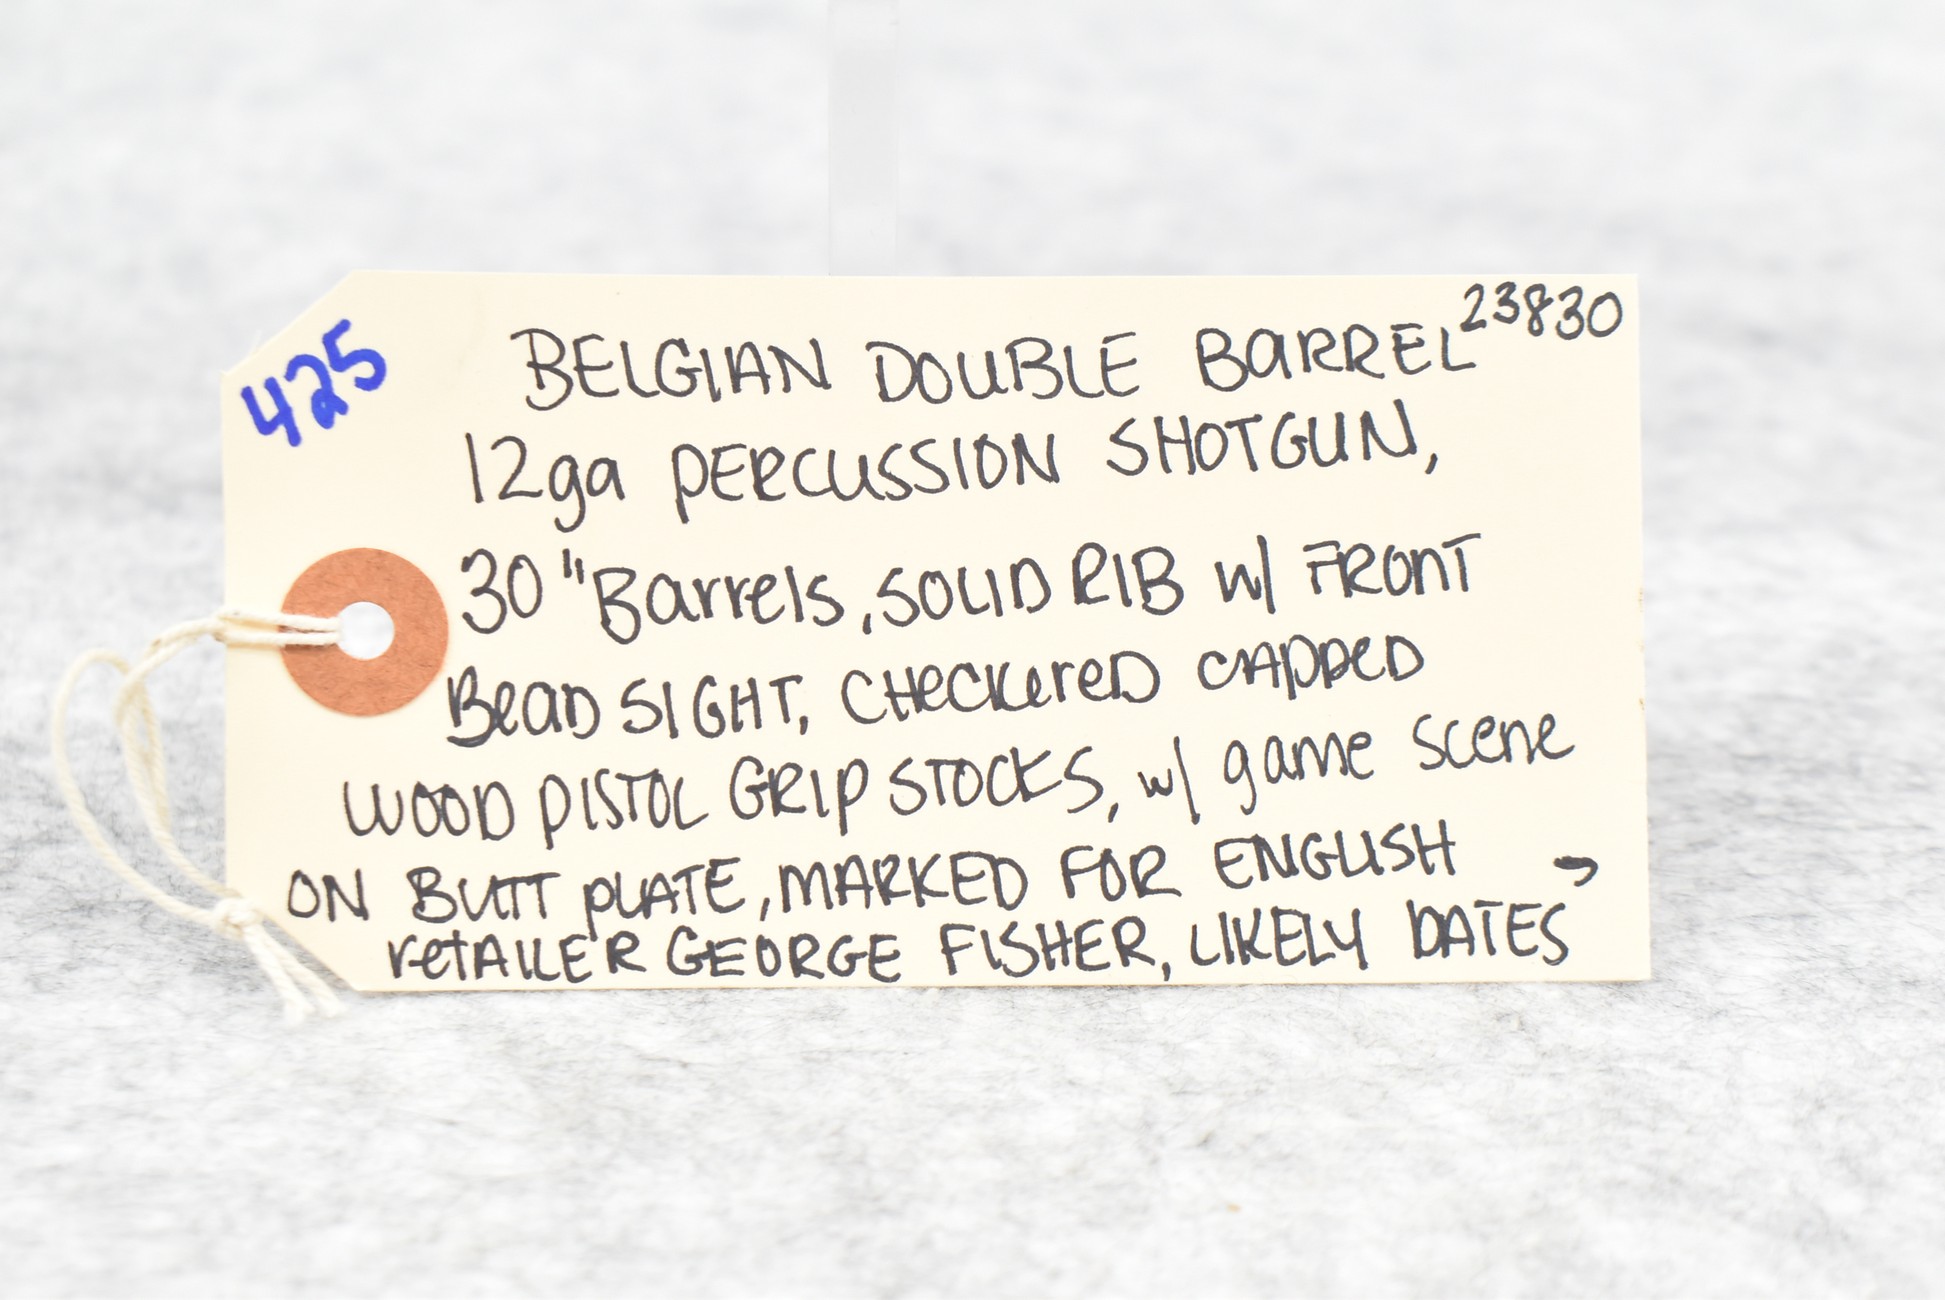 425
23830
BELGIAN DOUBLE BARREL
12ga PERCUSSION SHOTGUN,
30" Barrels, SOLID RIB w/ FRONT
Bead SIGHT, CHeckered CAPPED
WOOD PISTOL GRIP STOCKS, w/ game scene
ON BUTT PLATE, MARKED FOR ENGLISH
retAILER GEORGE FISHER, LIKELY DATES →